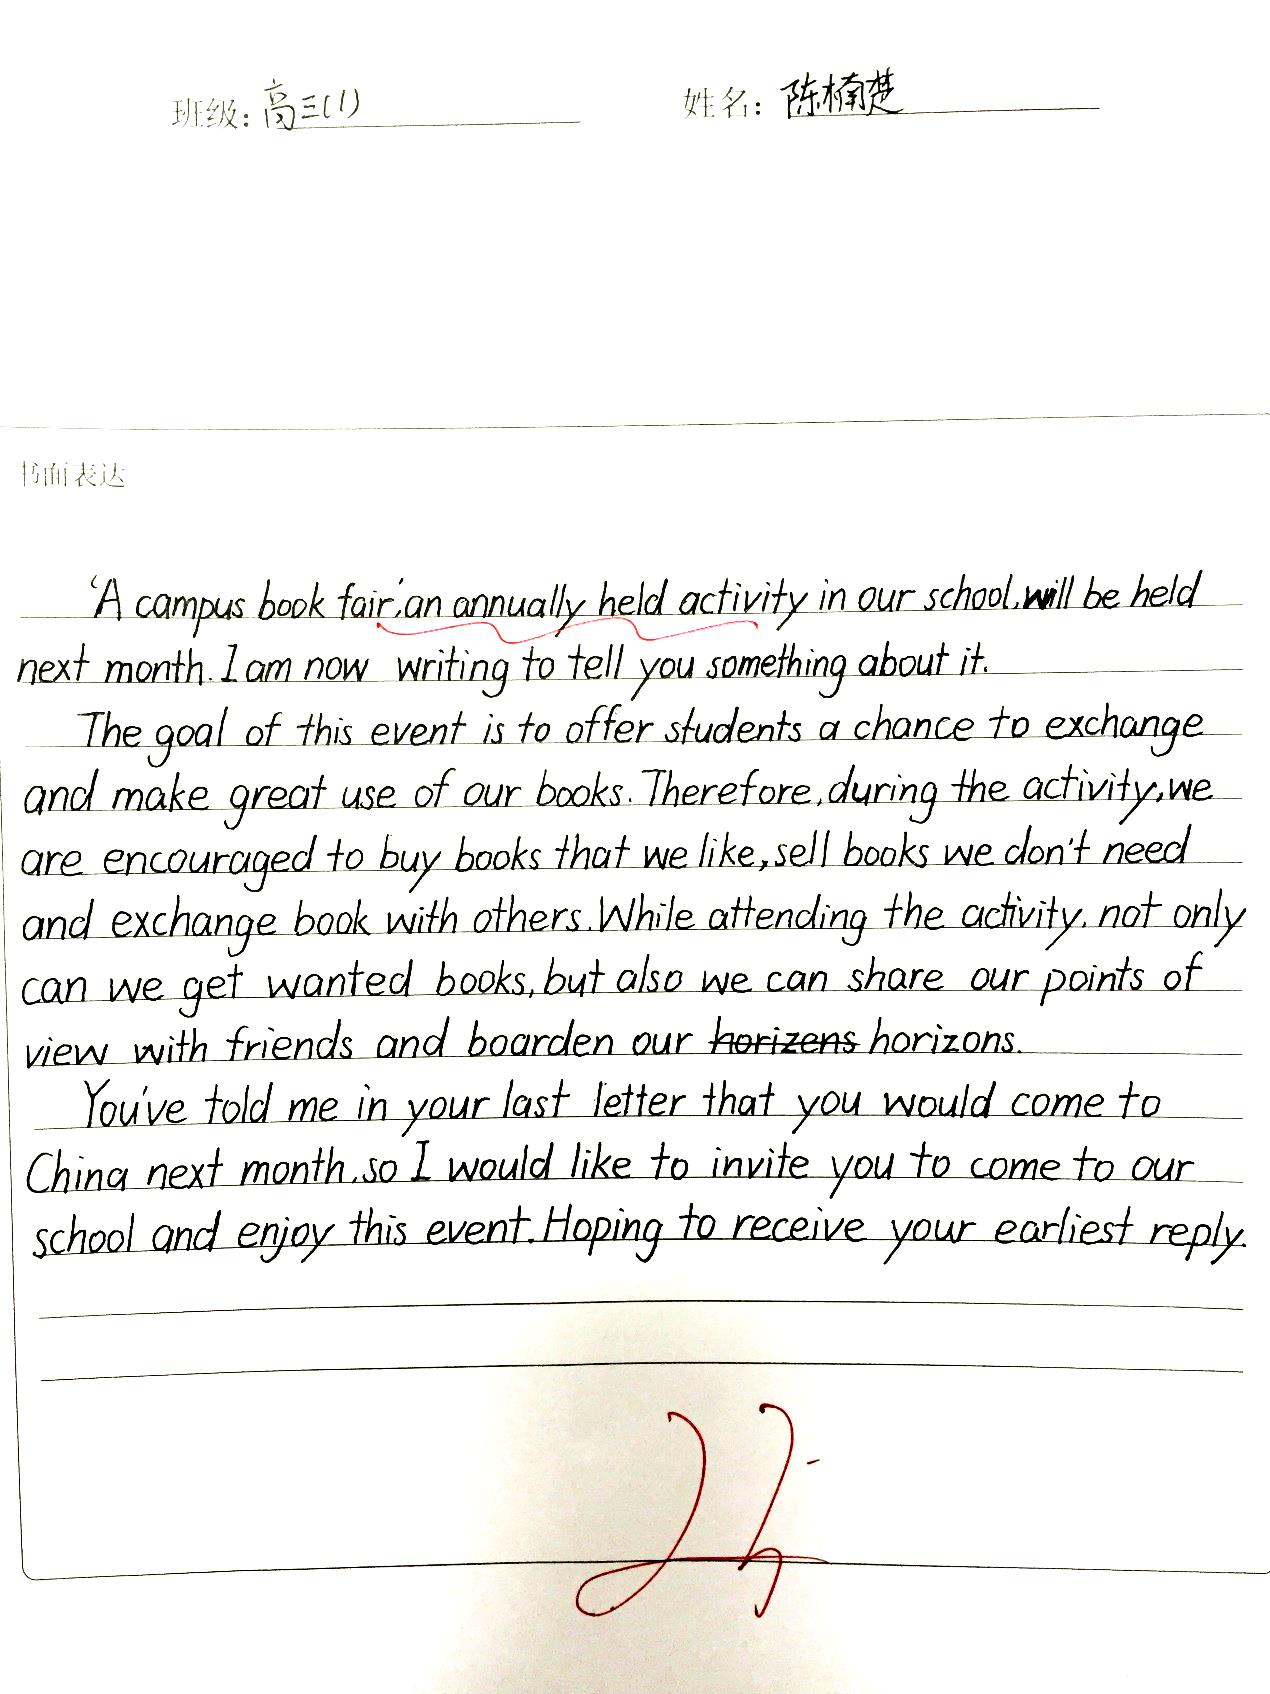 班级: 高三(1) 姓名: 陈楠楚
书面表达
'A campus book fair', an annually held activity in our school, will be held
next month. I am now writing to tell you something about it.
The goal of this event is to offer students a chance to exchange
and make great use of our books. Therefore, during the activity, we
are encouraged to buy books that we like, sell books we don't need
and exchange book with others. While attending the activity, not only
can we get wanted books, but also we can share our points of
view with friends and boarden our horizens horizons.
You've told me in your last letter that you would come to
China next month, so I would like to invite you to come to our
school and enjoy this event. Hoping to receive your earliest reply.